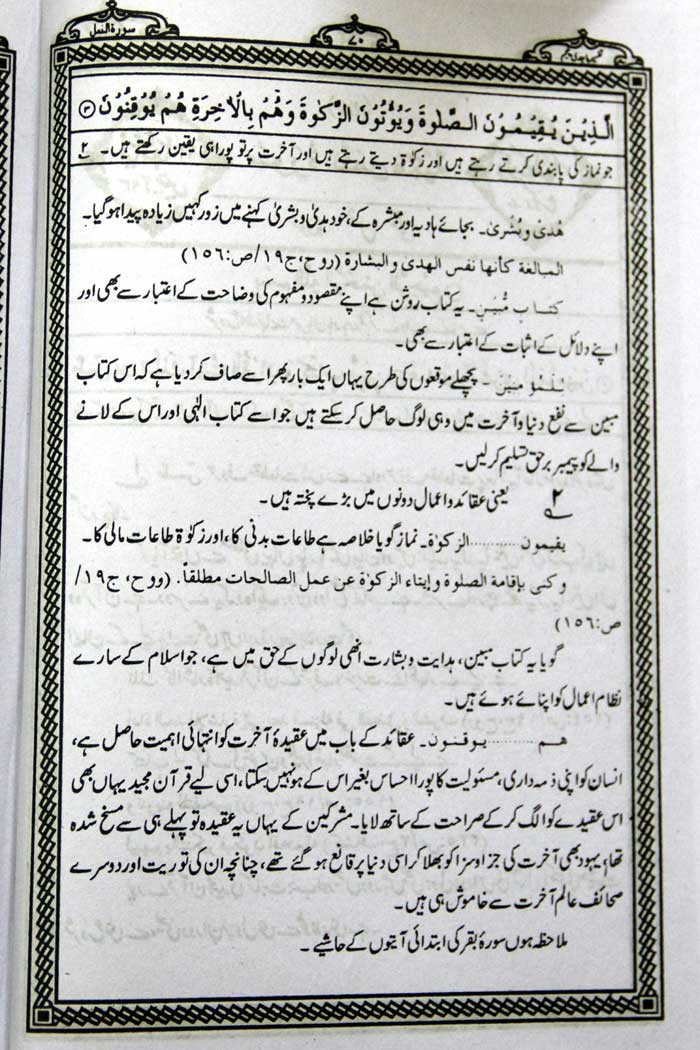 سورة النمل
۷۰
الَّذِیْنَ یُقِیْمُوْنَ الصَّلٰوةَ وَیُؤْتُوْنَ الزَّكٰوةَ وَهُمْ بِالْاٰخِرَةِ هُمْ یُوْقِنُوْنَ ﴿۳﴾
جو نماز کی پابندی کرتے رہتے ہیں اور زکوٰۃ دیتے رہتے ہیں اور آخرت پر تو پورا ہی یقین رکھتے ہیں۔ ۲
ھُدیً وبُشریٰ۔ بجائے ہادیہ اور مبشرہ کے، خود ہدیٰ و بشریٰ کہنے میں زور کہیں زیادہ پیدا ہو گیا۔
المبالغة كأنها نفس الهدى والبشارة (روح، ج۱۹/ص:۱۵٦)
کتاب مُّبین۔ یہ کتاب روشن ہے اپنے مقصود و مفہوم کی وضاحت کے اعتبار سے بھی اور
اپنے دلائل کے اثبات کے اعتبار سے بھی۔
۔ پچھلے موقعوں کی طرح یہاں ایک بار پھر اسے صاف کر دیا ہے کہ اس کتاب
مبین سے نفع دنیا و آخرت میں وہی لوگ حاصل کر سکتے ہیں جو اسے کتاب الٰہی اور اس کے لانے
والے کو پیمبر برحق تسلیم کر لیں۔
۲ یعنی عقائد و اعمال دونوں میں بڑے پختہ ہیں۔
یقیمون ......... الزکوٰۃ۔ نماز گویا خلاصہ ہے طاعات بدنی کا، اور زکوٰۃ طاعات مالی کا۔
وكنى بإقامة الصلوة وإيتاء الزكوٰة عن عمل الصالحات مطلقاً. (روح، ج۱۹/
ص:۱۵٦)
گویا یہ کتاب مبین، ہدایت و بشارت انھی لوگوں کے حق میں ہے، جو اسلام کے سارے
نظام اعمال کو اپنائے ہوئے ہیں۔
ھم ......... یوقنون۔ عقائد کے باب میں عقیدۂ آخرت کو انتہائی اہمیت حاصل ہے،
انسان کو اپنی ذمہ داری، مسئولیت کا پورا احساس بغیر اس کے ہو نہیں سکتا، اسی لیے قرآن مجید یہاں بھی
اس عقیدے کو الگ کر کے صراحت کے ساتھ لایا۔ مشرکین کے یہاں یہ عقیدہ تو پہلے ہی سے مسخ شدہ
تھا، یہود بھی آخرت کی جزا و سزا کو بھلا کر اسی دنیا پر قانع ہو گئے تھے، چنانچہ ان کی توریت اور دوسرے
صحائف عالم آخرت سے خاموش ہی ہیں۔
ملاحظہ ہوں سورۂ بقر کی ابتدائی آیتوں کے حاشیے۔